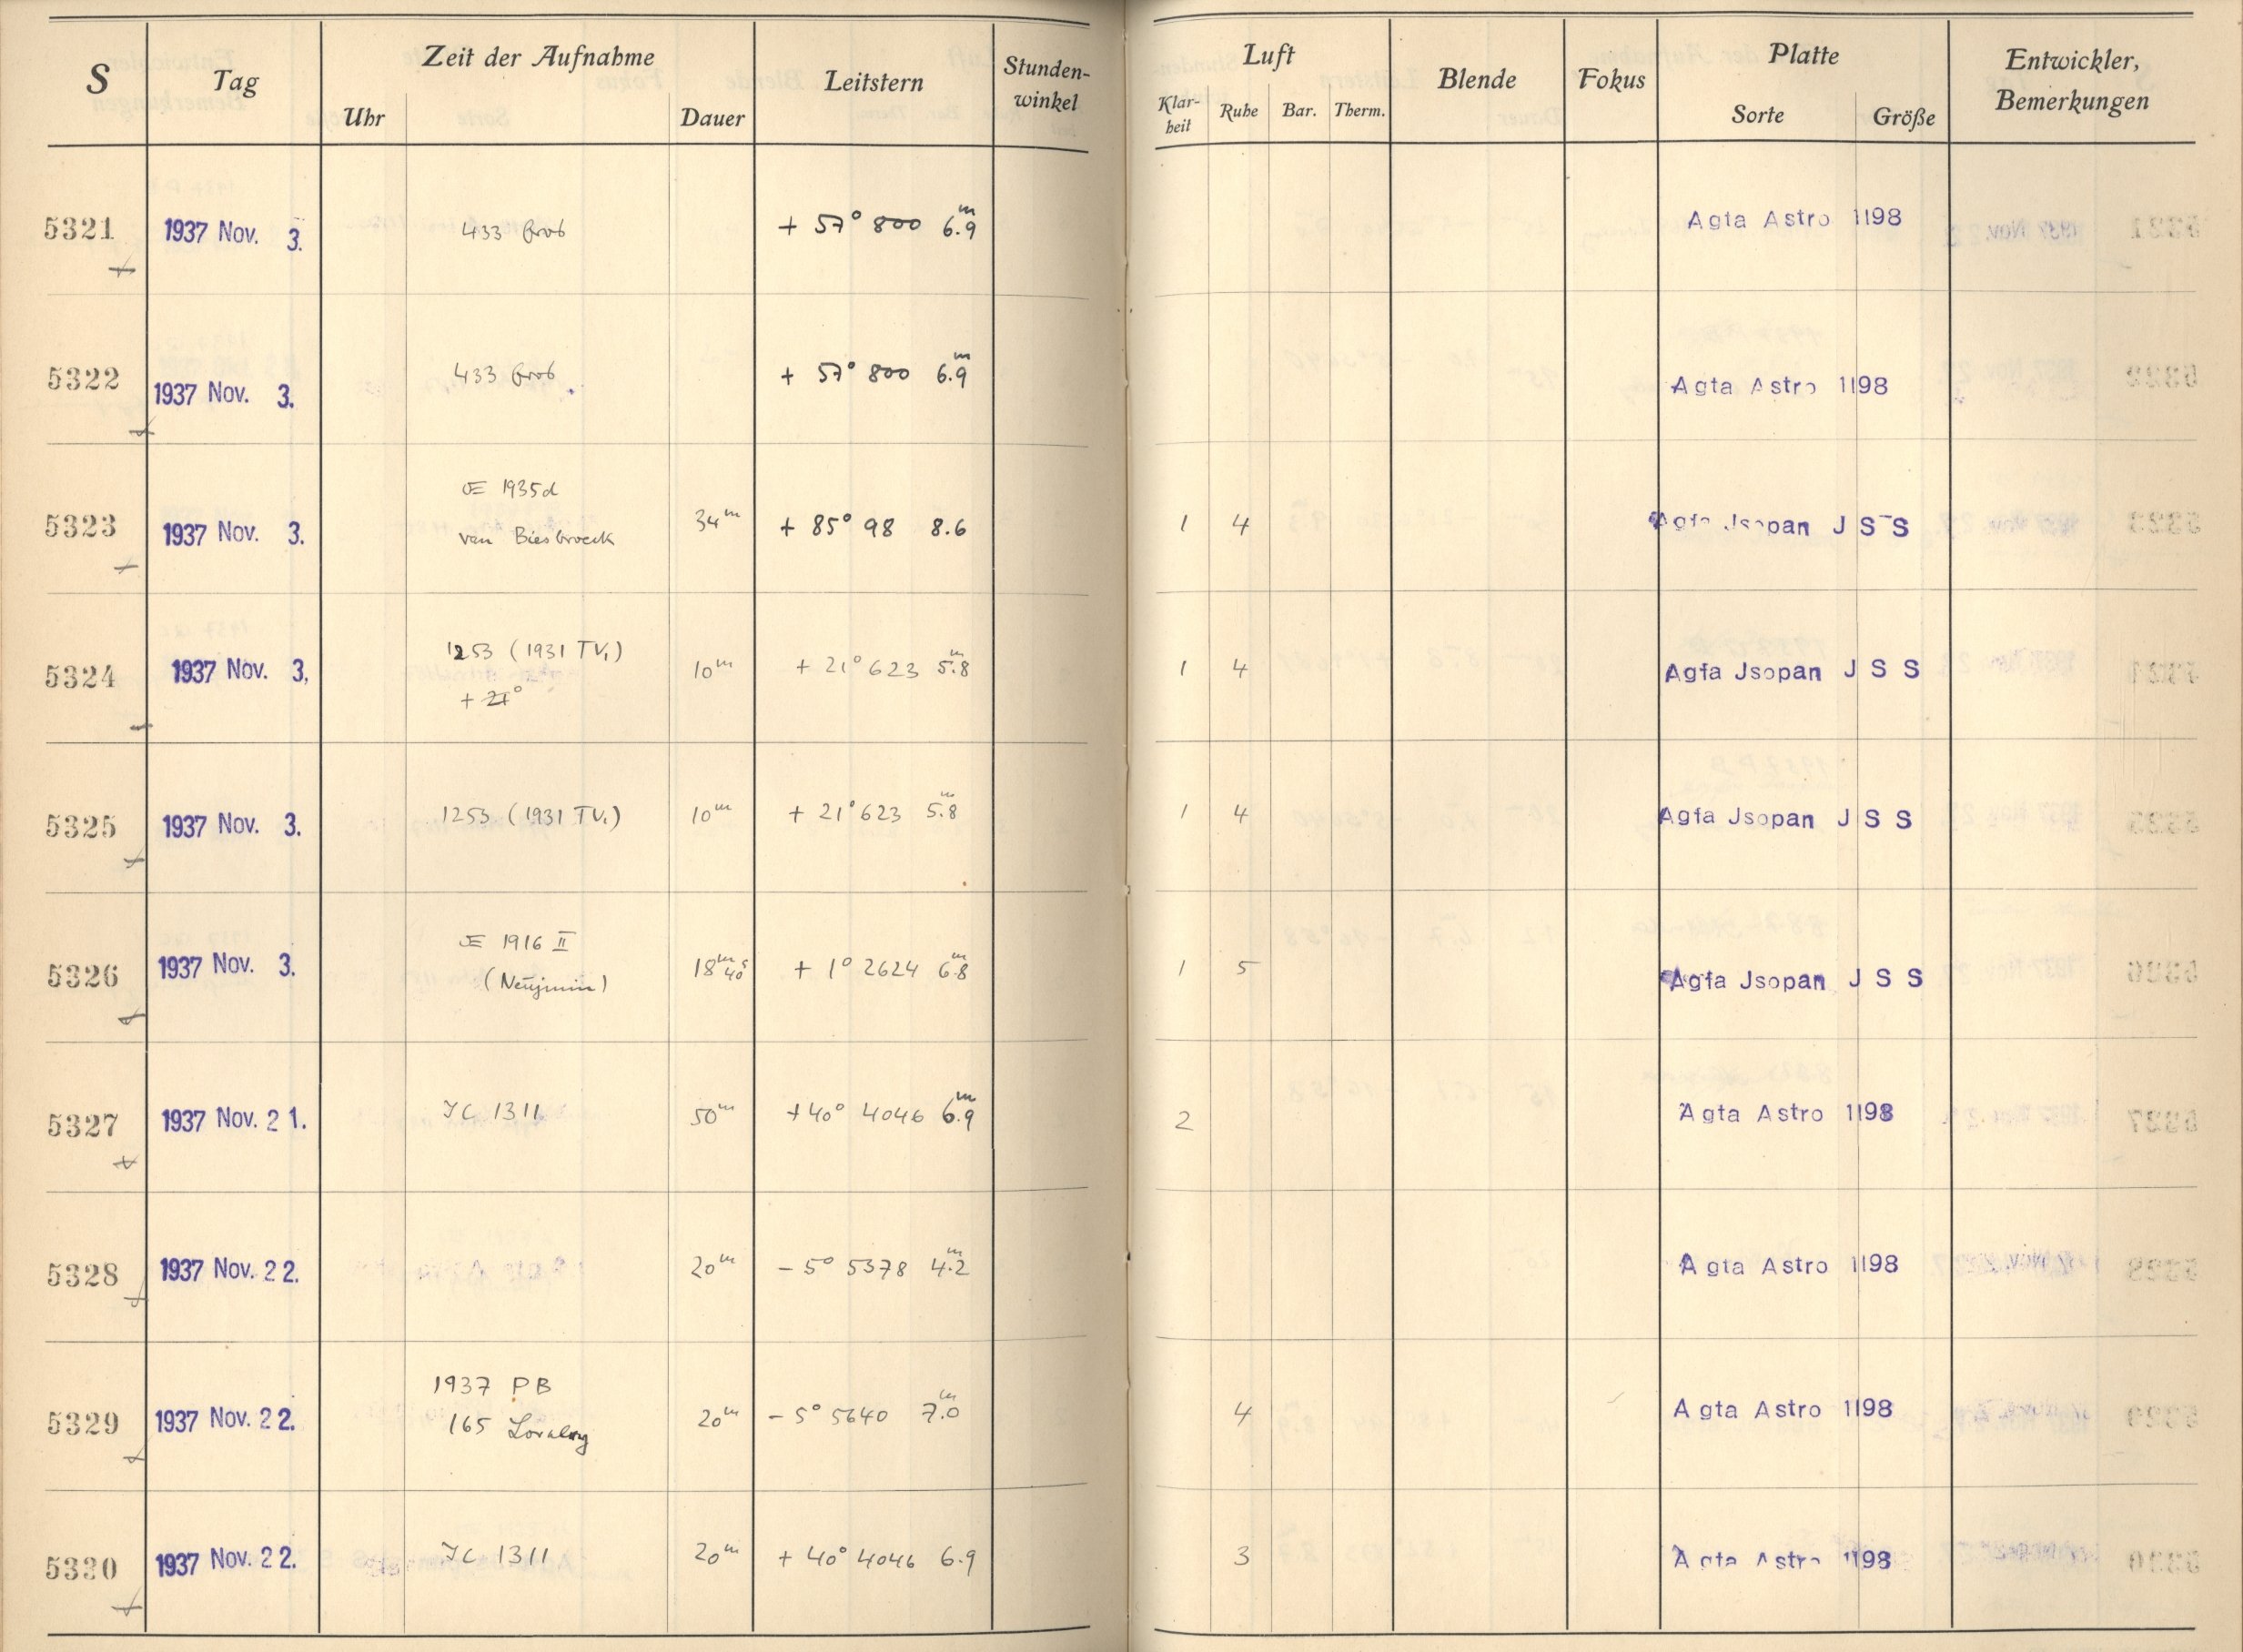 S Tag Zeit der Aufnahme Leitstern Stunden-winkel Luft Blende Fokus Platte Entwickler, Bemerkungen
Uhr Dauer Klar-heit Ruhe Bar. Therm. Sorte Größe
5321 1937 Nov. 3. 433 Eros + 57° 800 6.9ᵐ Agfa Astro 1198
5322 1937 Nov. 3. 433 Eros + 57° 800 6.9ᵐ Agfa Astro 1198
Œ 1935d
5323 1937 Nov. 3. van Biesbroeck 34ᵐ + 85° 98 8.6 1 4 Agfa Jsopan J S S
5324 1937 Nov. 3. 1253 (1931 TV₁) 10ᵐ + 21° 623 5.8ᵐ 1 4 Agfa Jsopan J S S
+ 21°
5325 1937 Nov. 3. 1253 (1931 TV₁) 10ᵐ + 21° 623 5.8ᵐ 1 4 Agfa Jsopan J S S
Œ 1916 II
5326 1937 Nov. 3. (Neujmin) 18ᵐ 40ˢ + 1° 2624 6.8ᵐ 1 5 Agfa Jsopan J S S
5327 1937 Nov. 21. JC 1311 50ᵐ + 40° 4046 6.9ᵐ 2 Agfa Astro 1198
5328 1937 Nov. 22. 20ᵐ - 5° 5378 4.2ᵐ Agfa Astro 1198
1937 PB
5329 1937 Nov. 22. 165 Loreley 20ᵐ - 5° 5640 7.0ᵐ 4 Agfa Astro 1198
5330 1937 Nov. 22. JC 1311 20ᵐ + 40° 4046 6.9 3 Agfa Astro 1198